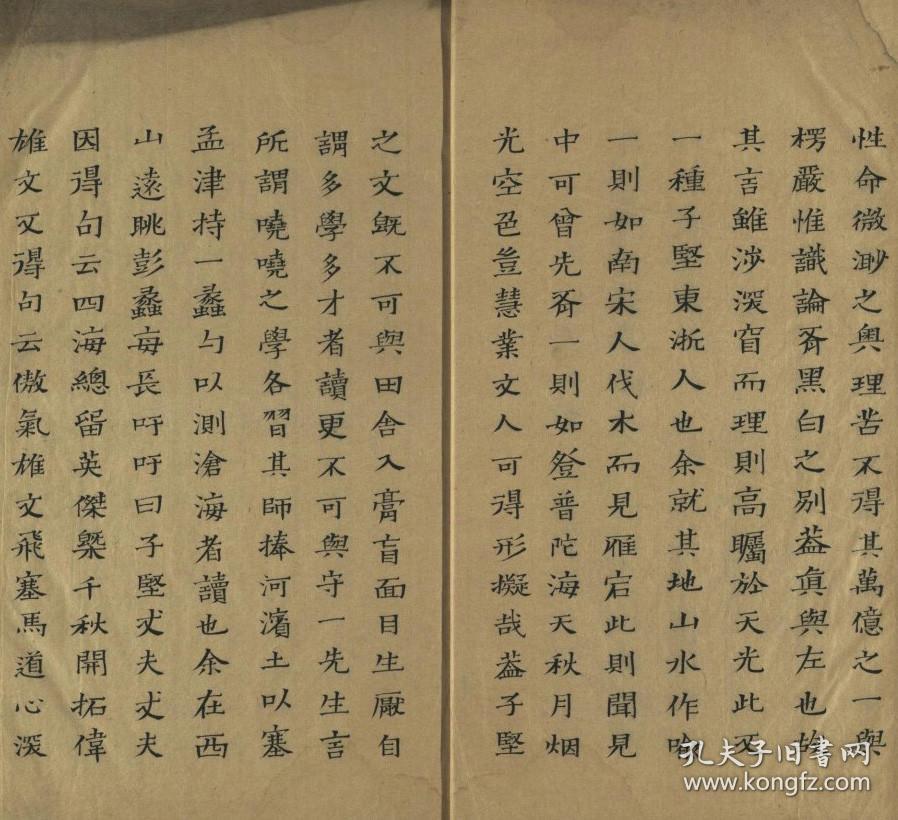 性命微渺之奧理苦不得其萬億之一與
楞嚴惟識論有黑白之别葢眞與左也故
其言雖涉深窅而理則高矚於天光此又
一種子堅東浙人也余就其地山水作喻
一則如南宋人伐木而見雁宕此則聞見
中可曾先有一則如登普陀海天秋月烟
光空色豈慧業文人可得形擬哉葢子堅
之文旣不可與田舍入膏盲面目生厭自
謂多學多才者讀更不可與守一先生言
所謂嘵嘵之學各習其師捧河濱土以塞
孟津持一蠡勺以測滄海者讀也余在西
山遠眺彭蠡每長吁吁曰子堅丈夫丈夫
因得句云四海總留英傑槩千秋開拓偉
雄文又得句云傲氣雄文飛塞馬道心深
孔夫子旧書网
www.kongfz.com